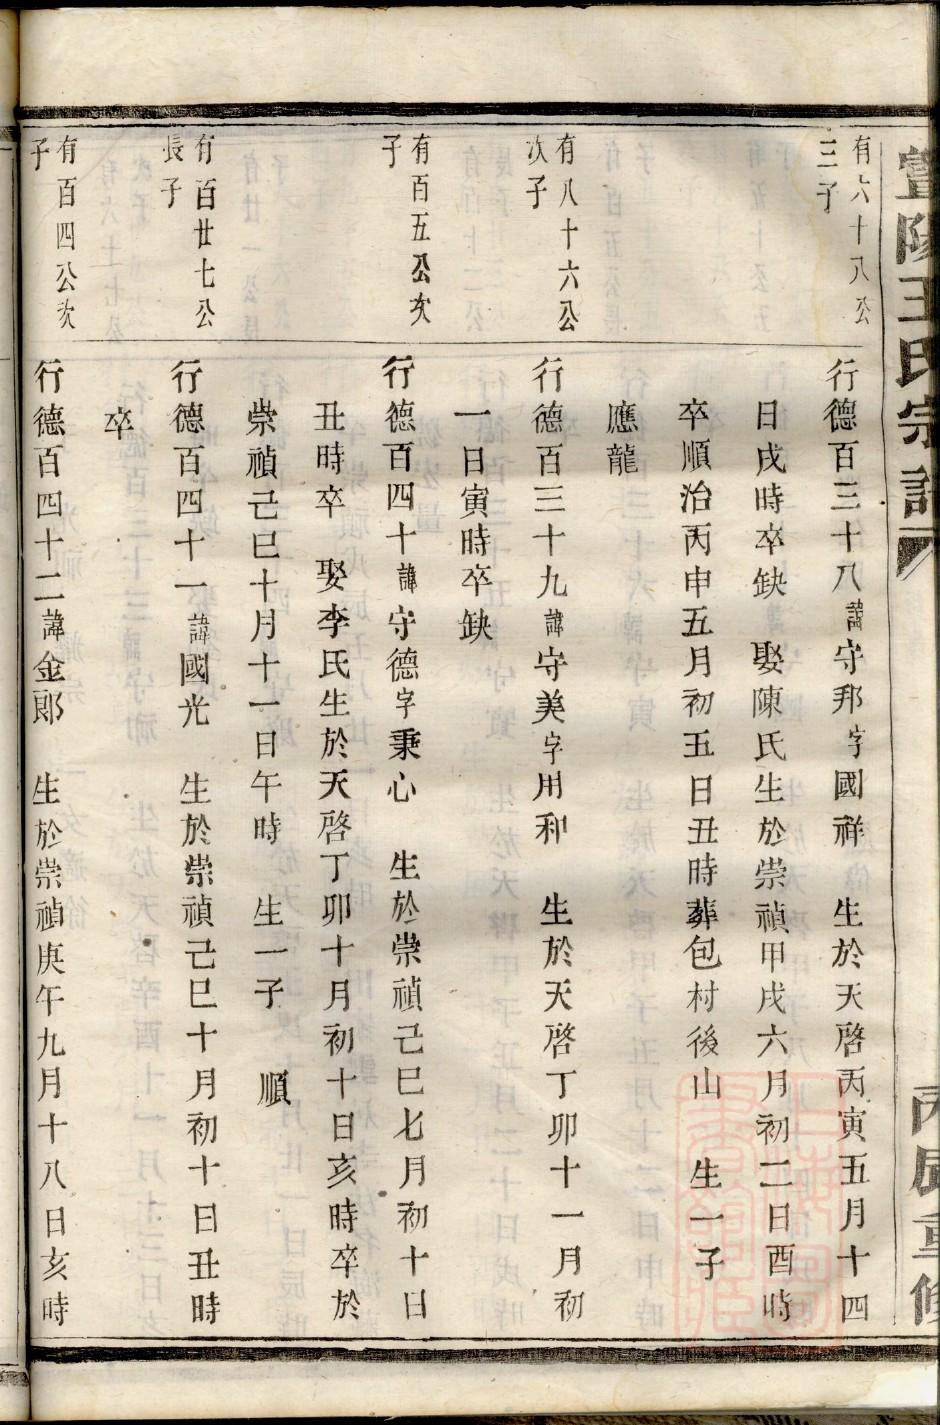 陽王氏宗譜
丙辰重修
有六十八公
三子
行德百三十八諱守邦字國祥　生於天啓丙寅五月十四
日戌時卒缺　娶陳氏生於崇禎甲戌六月初二日酉時
卒順治丙申五月初五日丑時葬包村後山　生一子
應龍
有八十六公
次子
行德百三十九諱守美字用和　生於天啓丁卯十一月初
一日寅時卒缺
有百五公次
子
行德百四十諱守德字秉心　生於崇禎己巳七月初十日
丑時卒　娶李氏生於天啓丁卯十月初十日亥時卒於
崇禎己巳十月十一日午時　生一子　順
有百廿七公
長子
行德百四十一諱國光　生於崇禎己巳十月初十日丑時
卒
有百四公次
子
行德百四十二諱金郎　生於崇禎庚午九月十八日亥時